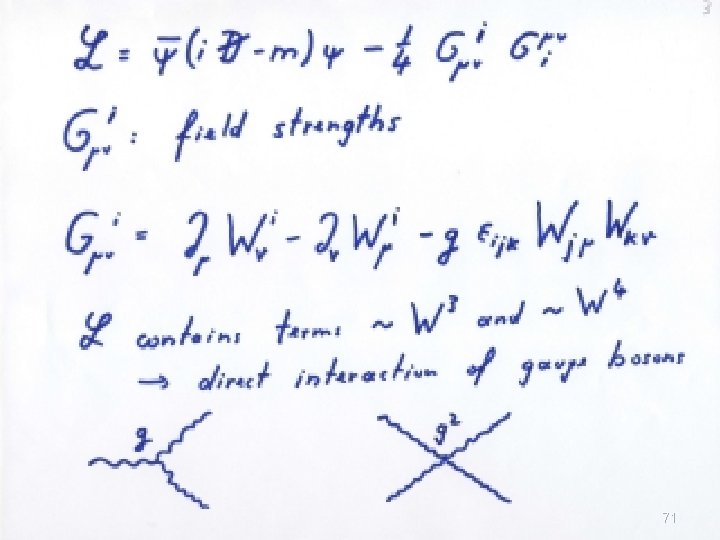 ℒ = ψ̄ (i D̸ - m) ψ - 1/4 G_μν^i G_i^μν
G_μν^i : field strengths
G_μν^i = ∂_μ W_ν^i - ∂_ν W_μ^i - g ε_ijk W_jμ W_kν
ℒ contains terms ~ W^3 and ~ W^4
→ direct interaction of gauge bosons
g g^2
71